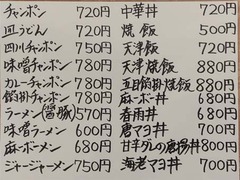 チャンポン 720円
皿うどん 720円
四川チャンポン 750円
味噌チャンポン 780円
カレーチャンポン 780円
餡掛チャンポン 780円
ラーメン(醤豚) 570円
味噌ラーメン 600円
麻ボーメン 680円
ジャージャーメン 750円
中華丼 720円
焼飯 500円
天津飯 720円
天津焼飯 880円
五目餡掛焼飯 880円
麻ーボー丼 680円
春雨丼 680円
唐マヨ丼 700円
甘辛ダレの唐揚丼 800円
海老マヨ丼 700円